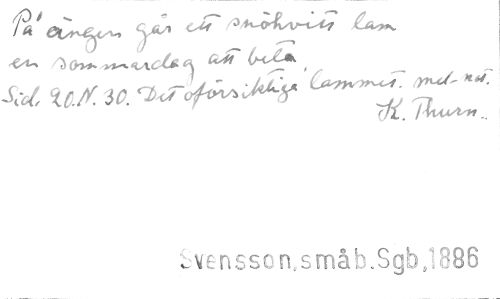 På ängen går ett snöhvitt lam
en sommardag att beta
Sid. 20. N. 30. Det oförsiktiga lammet. mel. not.
K. Thurn.
Svensson, småb. Sgb, 1886